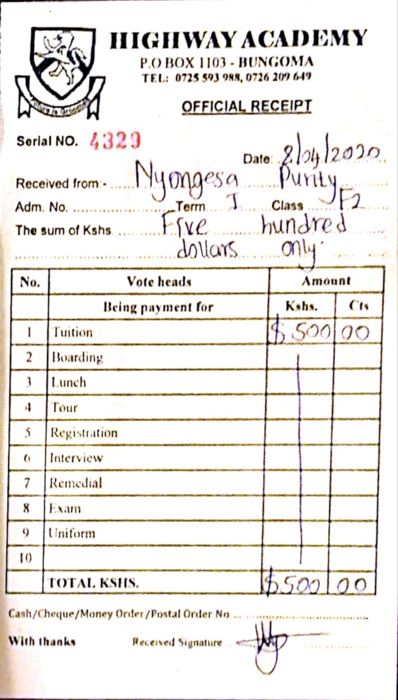 HIGHWAY ACADEMY
P.O BOX 1103 - BUNGOMA
TEL: 0725 593 988, 0726 209 649
OFFICIAL RECEIPT
Serial NO. 4329
Date: 8/04/2020
Received from - Nyongesa Purity
Adm. No. Term I Class F2
The sum of Kshs Five hundred
dollars only.
No. Vote heads Amount
Being payment for Kshs. Cts
1 Tuition $500 00
2 Boarding
3 Lunch
4 Tour
5 Registration
6 Interview
7 Remedial
8 Exam
9 Uniform
10
TOTAL KSHS. $500 00
Cash/Cheque/Money Order/Postal Order No
With thanks Received Signature